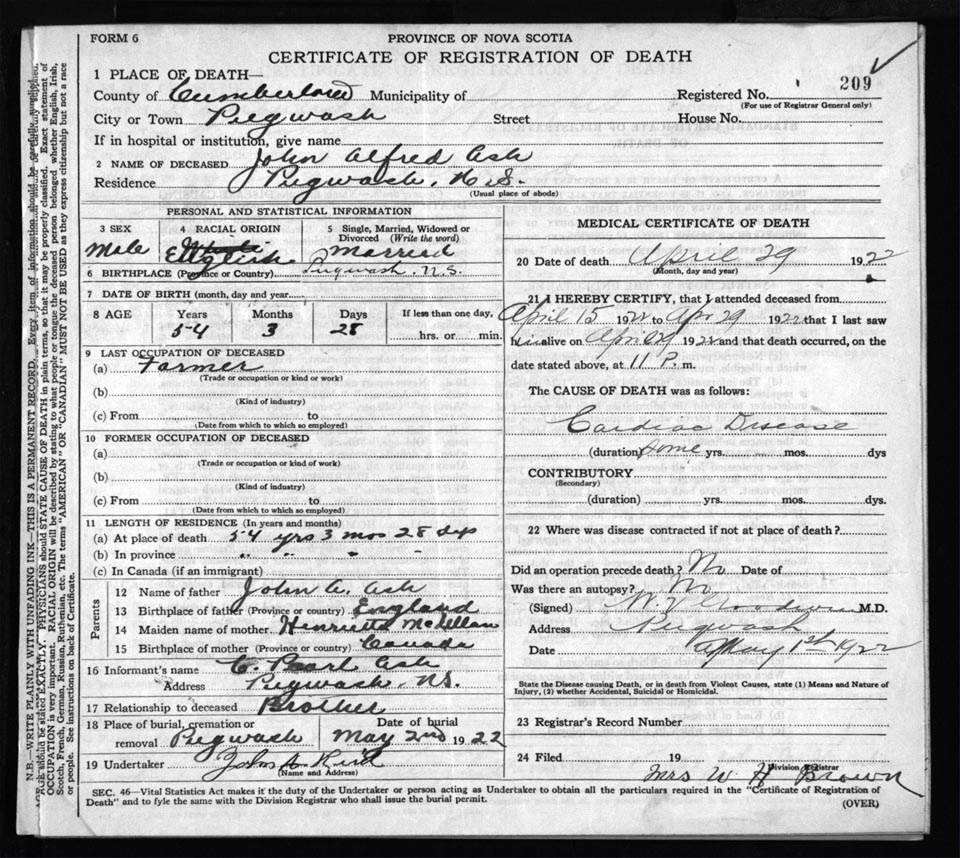 FORM 6
PROVINCE OF NOVA SCOTIA
CERTIFICATE OF REGISTRATION OF DEATH
1 PLACE OF DEATH—
County of Cumberland Municipality of Registered No. 209
(For use of Registrar General only)
City or Town Pugwash Street House No.
If in hospital or institution, give name
2 NAME OF DECEASED John Alfred Ash
Residence Pugwash, N.S.
(Usual place of abode)
PERSONAL AND STATISTICAL INFORMATION
3 SEX 4 RACIAL ORIGIN 5 Single, Married, Widowed or Divorced (Write the word)
Male English Married
6 BIRTHPLACE (Province or Country) Pugwash N.S.
7 DATE OF BIRTH (month, day and year)
8 AGE Years Months Days If less than one day,
54 3 28 hrs. or min.
9 LAST OCCUPATION OF DECEASED
(a) Farmer
(Trade or occupation or kind of work)
(b)
(Kind of industry)
(c) From to
(Date from which to which so employed)
10 FORMER OCCUPATION OF DECEASED
(a)
(Trade or occupation or kind of work)
(b)
(Kind of industry)
(c) From to
(Date from which to which so employed)
11 LENGTH OF RESIDENCE (In years and months)
(a) At place of death 54 yrs 3 mos 28 dys
(b) In province " " " "
(c) In Canada (if an immigrant)
Parents
12 Name of father John A. Ash
13 Birthplace of father (Province or country) England
14 Maiden name of mother Henrietta McLellan
15 Birthplace of mother (Province or country) Canada
16 Informant's name C. Pearl Ash
Address Pugwash, N.S.
17 Relationship to deceased Brother
18 Place of burial, cremation or removal Pugwash Date of burial May 2nd 1922
19 Undertaker John
(Name and Address)
MEDICAL CERTIFICATE OF DEATH
20 Date of death April 29 1922
(Month, day and year)
21 I HEREBY CERTIFY, that I attended deceased from
April 15 1922 to Apr 29 1922 that I last saw
him alive on Apr 29 1922 and that death occurred, on the
date stated above, at 11 P. m.
The CAUSE OF DEATH was as follows:
Cardiac Disease
(duration) some yrs. mos. dys
CONTRIBUTORY
(Secondary)
(duration) yrs. mos. dys.
22 Where was disease contracted if not at place of death?
Did an operation precede death? No Date of
Was there an autopsy? No
(Signed) M.D.
Address Pugwash
Date May 1st 1922
State the Disease causing Death, or in death from Violent Causes, state (1) Means and Nature of Injury, (2) whether Accidental, Suicidal or Homicidal.
23 Registrar's Record Number
24 Filed 19
Mrs W H Brown
Division Registrar
SEC. 46—Vital Statistics Act makes it the duty of the Undertaker or person acting as Undertaker to obtain all the particulars required in the "Certificate of Registration of
Death" and to fyle the same with the Division Registrar who shall issue the burial permit. (OVER)
N.B.—WRITE PLAINLY WITH UNFADING INK—THIS IS A PERMANENT RECORD. Every item of information should be carefully supplied.
AGE should be stated EXACTLY. PHYSICIANS should STATE CAUSE OF DEATH in plain terms, so that it may be properly classified. Exact statement of
OCCUPATION is very important. RACIAL ORIGIN will be described by stating to what people or tongue the deceased person belonged whether English, Irish,
Scotch, French, German, Russian, Ruthenian, etc. The terms "AMERICAN" OR "CANADIAN" MUST NOT BE USED as they express citizenship but not a race
or people. See instructions on back of Certificate.